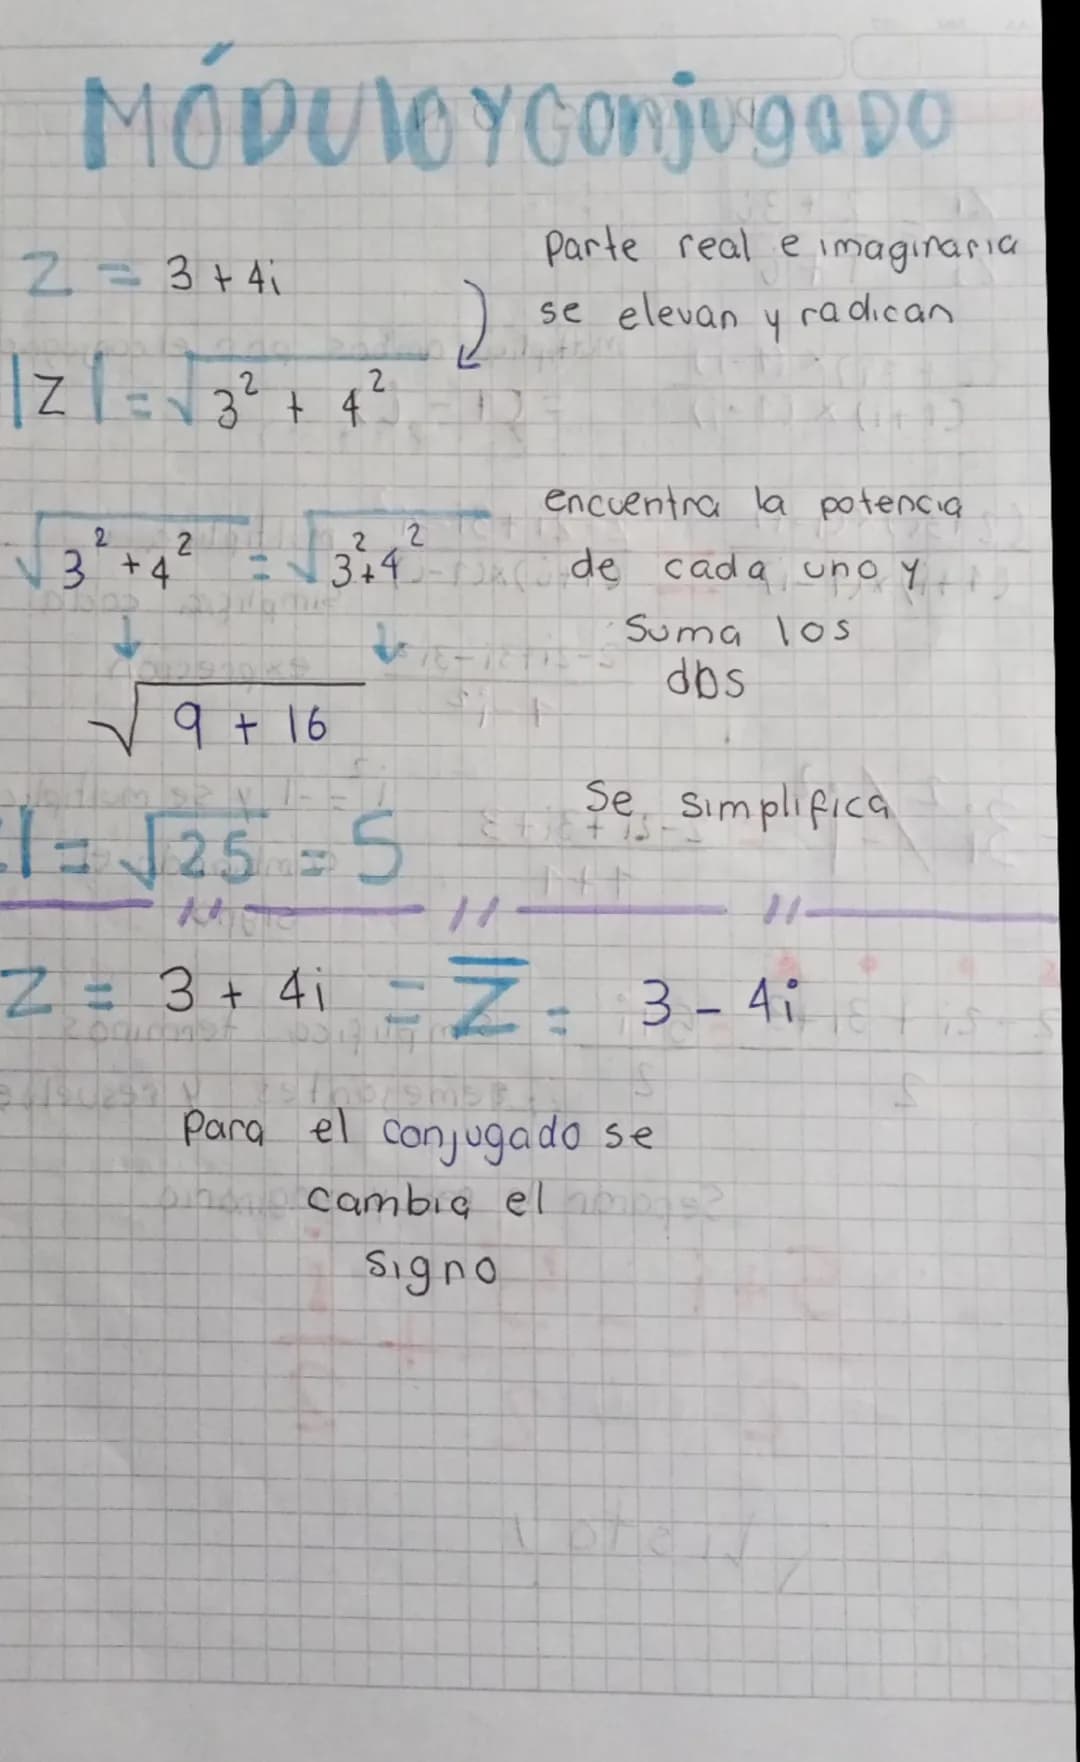 MÓDULO Y CONjugaDO
Z = 3 + 4i
Parte real e imaginaria
se elevan y radican
|Z| = √3² + 4²
encuentra la potencia
√3² + 4² = √3² + 4²
de cada uno y
Suma los
dos
√9 + 16
Se simplifica
| = √25 = 5
Z = 3 + 4i = Z̅ = 3 - 4i
Para el conjugado se
cambia el
signo